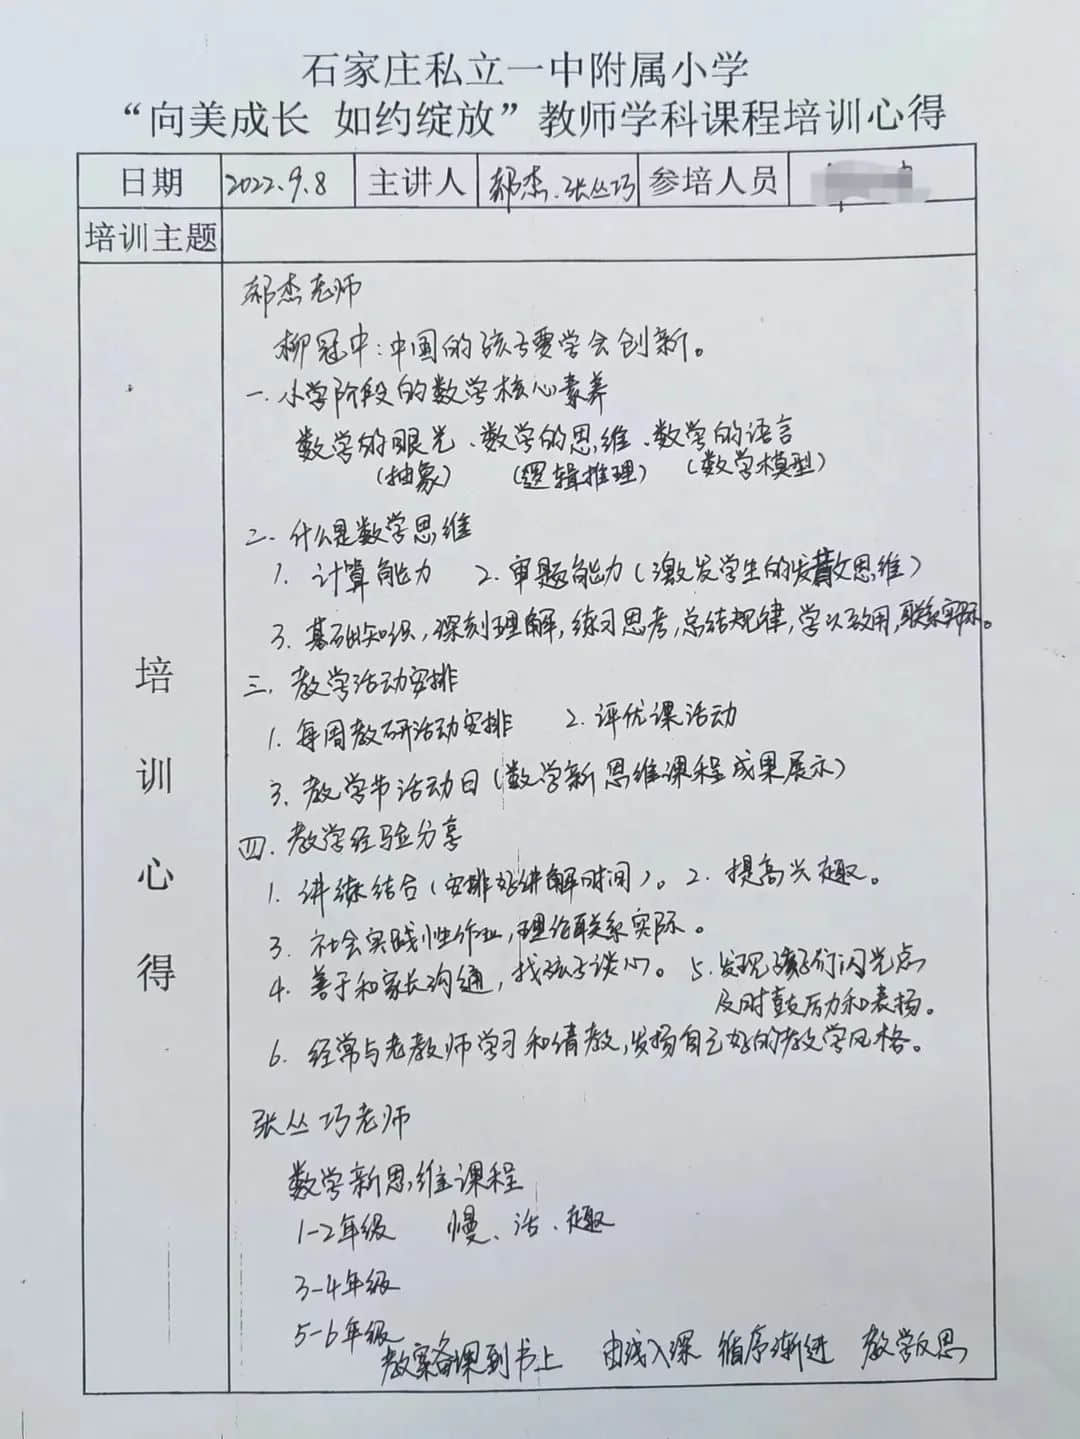 石家庄私立一中附属小学
“向美成长 如约绽放”教师学科课程培训心得
日期 2022.9.8 主讲人 郝杰、张丛巧 参培人员
培训主题
培训心得
郝杰老师
柳冠中:中国的孩子要学会创新。
一.小学阶段的数学核心素养
数学的眼光、数学的思维、数学的语言
(抽象) (逻辑推理) (数学模型)
二.什么是数学思维
1.计算能力 2.审题能力(激发学生的发散思维)
3.基础知识,深刻理解,练习思考,总结规律,学以致用,联系实际。
三.教学活动安排
1.每周教研活动安排 2.评优课活动
3.教学节活动日(数学新思维课程成果展示)
四.教学经验分享
1.讲练结合(安排好讲解时间)。2.提高兴趣。
3.社会实践性作业,理论联系实际。
4.善于和家长沟通,找孩子谈心。 5.发现孩子们闪光点
及时鼓励和表扬。
6.经常与老教师学习和请教,发扬自己好的教学风格。
张丛巧老师
数学新思维课程
1-2年级 慢、活、趣
3-4年级
5-6年级
教案备课到书上 由浅入深 循序渐进 教学反思